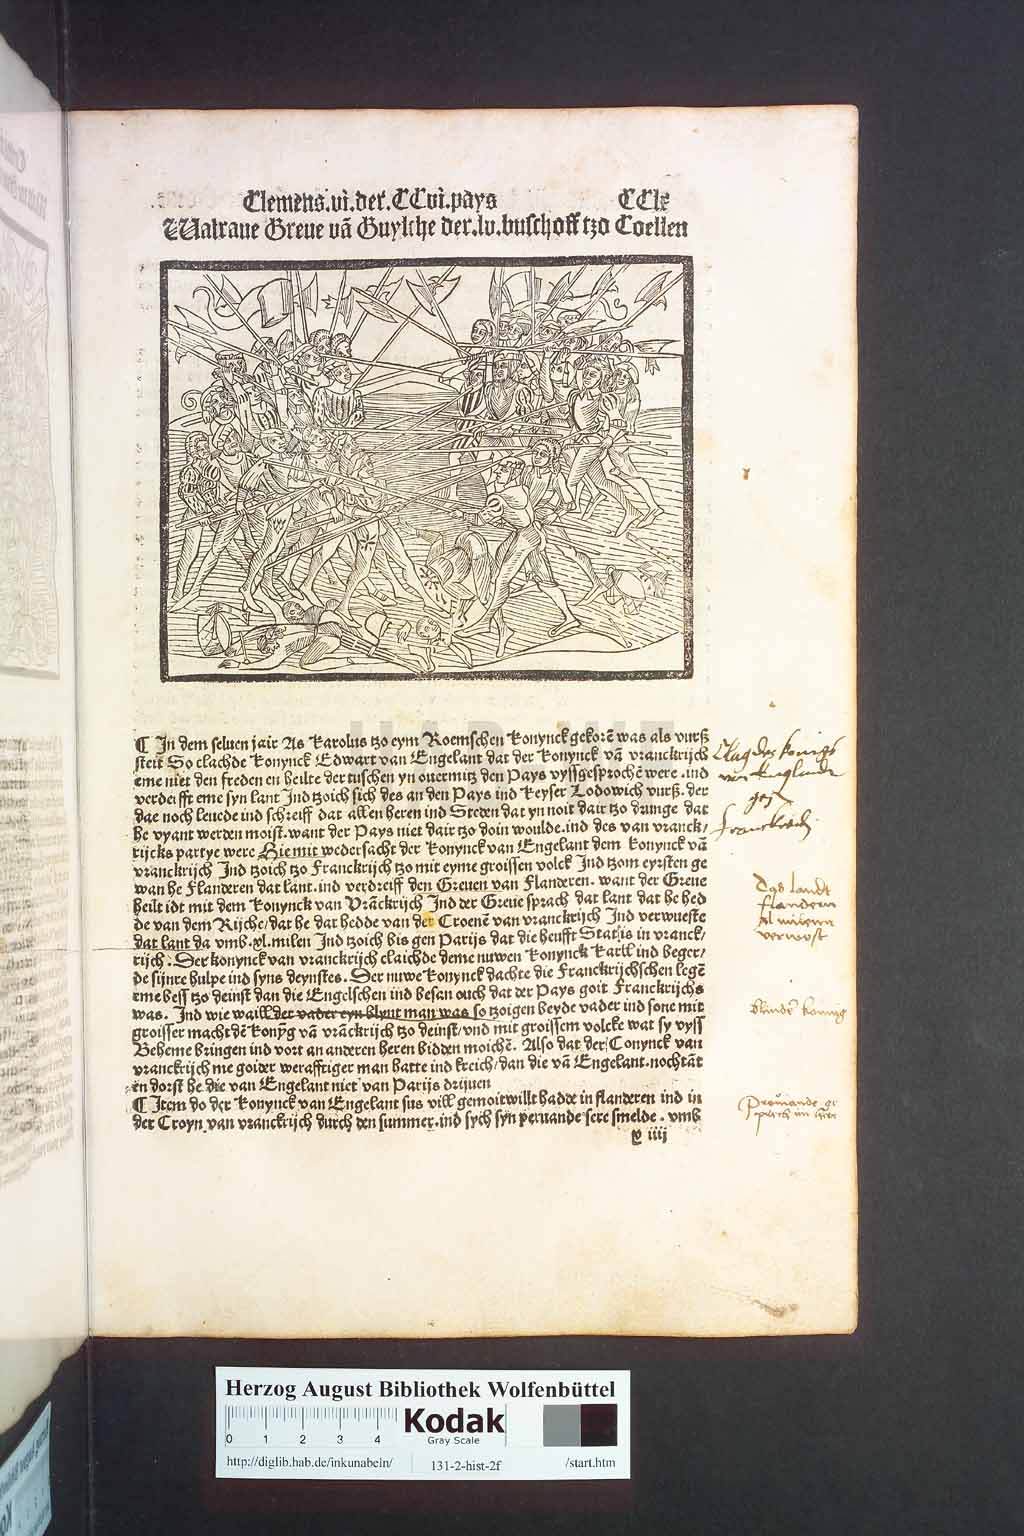 Clemens.vi.der.CCvi.pays CClx
Walraue Greue vā Guylche der.lv.buschoff tzo Coellen
¶ In dem seluen jair As Karolus tzo eym Roemschen Konynck gekorē was als vurß
steit So clachde Konynck Edwart van Engelant dat der Konynck vā vranckrijch
eme niet den freden en heilte der tuschen yn ouermitz den Pays vyssgesprochē were .ind
verdeifft eme syn lant Ind tzoich sich des an den Pays ind Keyser Lodowich vurß. der
dae noch leuede ind schreiff dat allen heren ind Steden dat yn noit dair tzo drunge dat
he vyant werden moist. want der Pays niet dair tzo doin woulde.ind des van vranck/
rijcks partye were Hie mit wedersacht der Konynck van Engelant dem Konynck vā
vranckrijch Ind tzoich tzo Franckrijch tzo mit eyme groissen volck Ind tzom eyrsten ge
wan he Flanderen dat lant.ind verdreiff den Greuen van Flanderen. want der Greue
heilt idt mit dem Konynck van Vrāckrijch Ind der Greue sprach dat lant dat he hed
de van dem Rijche/dat he dat hedde van der Croenē van vranckrijch Ind verwueste
dat lant da vmb.xl.milen Ind tzoich bis gen Parijs dat die heufft Stat is in vranck/
rijch. Der konynck van vranckrijch claichde deme nuwen Konynck Karll ind beger/
de sijnre hulpe ind syns deynstes. Der nuwe Konynck dachte die Franckrijchschen legē
eme bess tzo deinst dan die Engelschen ind besan ouch dat der Pays goit Franckrijchs
was. Ind wie waill der vader eyn blynt man was so tzoigen beyde vader ind sone mit
groisser macht dē Konyg vā vrāckrijch tzo deinst/vnd mit groissem volcke wat sy vyss
Beheme bringen ind vort an anderen heren bidden moichē. Also dat der Conynck van
vranckrijch me goider werafftiger man hatte ind kreich/dan die vā Engelant.nochtāt
en dorst he die van Engelant niet van Parijs drijuen
¶ Item do der Konynck van Engelant sus vill gemoitwillt hadde in flanderen ind in
der Croyn van vranckrijch durch den summer.ind sych syn peruande sere smelde . vmb
y iiij
Clag des konigs
von Englandt
gen
Franckreich
Das landt
flandern
xl milenn
verwost
blinder konnig
Herzog August Bibliothek Wolfenbüttel
0 1 2 3 4
Kodak
Gray Scale
http://diglib.hab.de/inkunabeln/ 131-2-hist-2f /start.htm